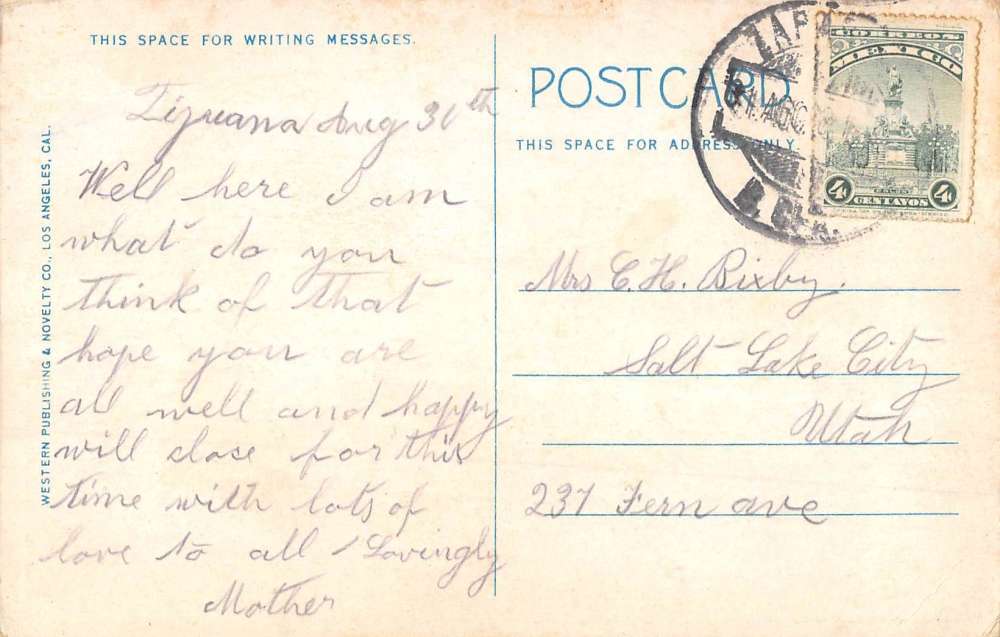 THIS SPACE FOR WRITING MESSAGES.
Tijuana Aug 30th
Well here I am
what do you
think of that
hope you are
all well and happy
will close for this
time with lots of
love to all Lovingly
Mother
WESTERN PUBLISHING & NOVELTY CO., LOS ANGELES, CAL.
POSTCARD
THIS SPACE FOR ADDRESS ONLY.
CORREOS
MEXICO
COLON
4c CENTAVOS 4c
31 AGO
Mrs C. H. Bixby.
Salt Lake City
Utah
237 Fern ave